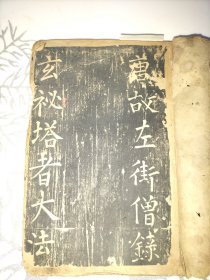 唐故左街僧錄
玄祕塔者大法